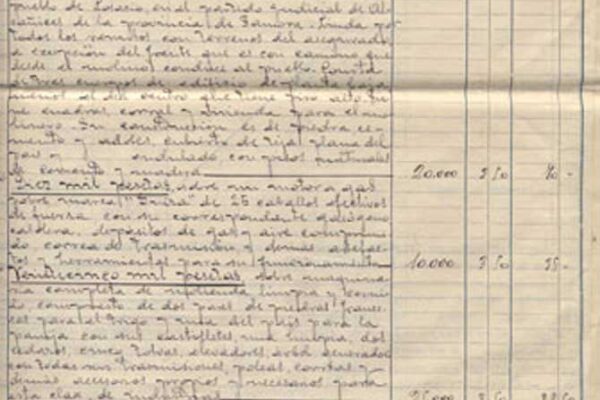 pueblo de Losacio, en el partido judicial de Al-
cañices de la provincia de Zamora. Linda por
todos los rumbos con terrenos del asegurado
a excepción del frente que es con camino que
desde el molino conduce al pueblo. Consta
de tres cuerpos de edificio de planta baja
menos el del centro que tiene piso alto.
cuadras, corral y vivienda para el mo-
linero. Su construcción es de piedra ce-
mento y adobes, cubierto de teja plana del
país y ondulado con pisos
de cemento y madera 20.000 3 50 70 -
Diez mil pesetas, sobre un motor a gas
pobre marca "Suiza" de 25 caballos efectivos
de fuerza con su correspondiente gasógeno
caldera, depósitos de gas y aire comprimi-
do, correa de trasmisión y demás
y herramientas para su funcionamiento 10.000 3 50 35 -
Veinticinco mil pesetas, sobre maquina-
ria completa de molienda limpia y
compuesto de dos pares de piedras france-
sas para el trigo y una del país para la
con sus una limpia, dos
cedazos, cinco tolvas, elevadores,
con todas sus trasmisiones, poleas, correas y
demás accesorios propios y necesarios para
esta clase de industrias 25.000 3 50